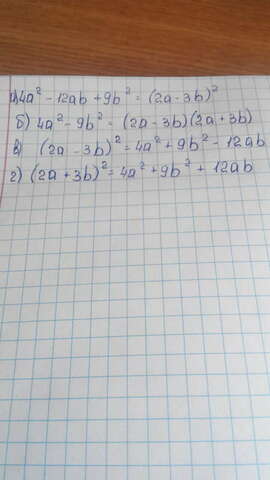 а) 4a² - 12ab + 9b² = (2a - 3b)²
б) 4a² - 9b² = (2a - 3b)(2a + 3b)
в) (2a - 3b)² = 4a² + 9b² - 12ab
г) (2a + 3b)² = 4a² + 9b² + 12ab